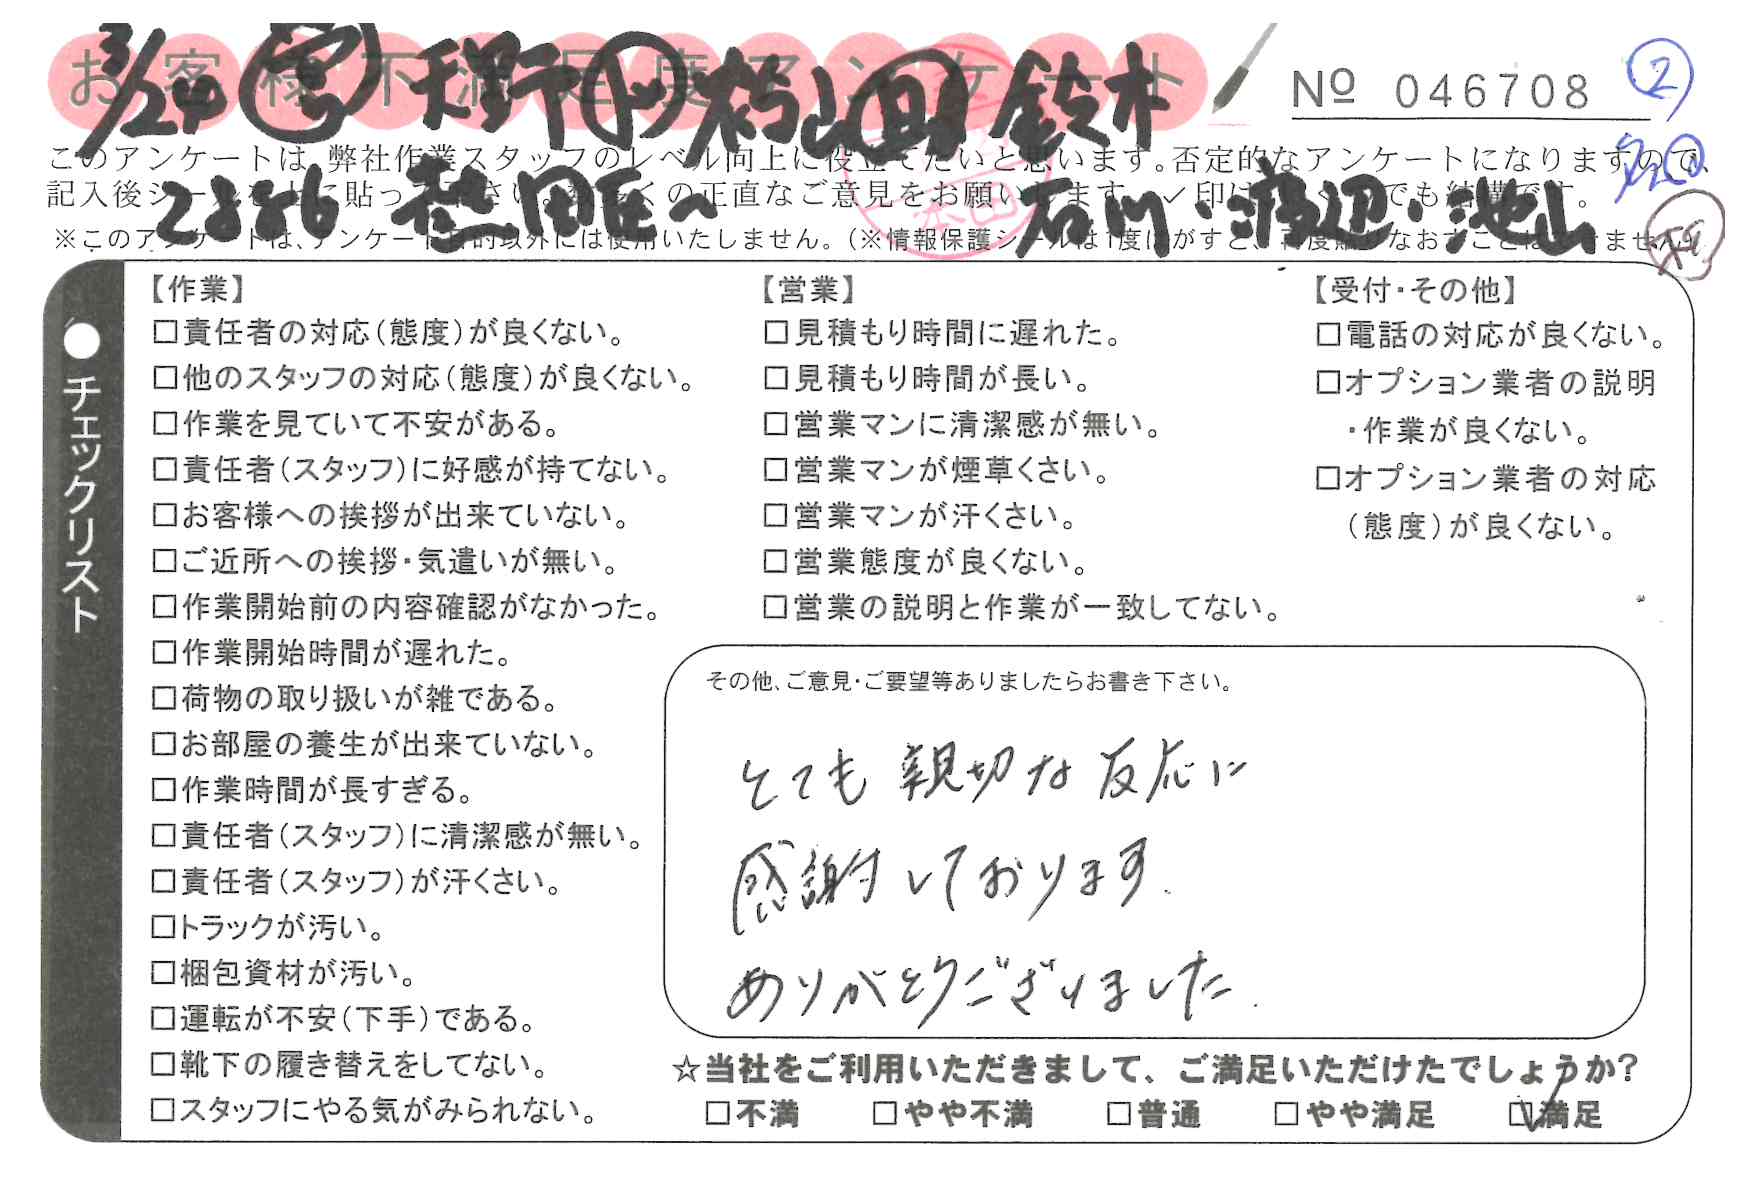 お客様不満足度アンケート
3/24 鈴木
No 046708
②
このアンケートは、弊社作業スタッフのレベル向上に役立てたいと思います。否定的なアンケートになりますので、
記入後シールを上に貼って下さい。数多くの正直なご意見をお願いします。✓印はいくつでも結構です。
石川・渡辺・池山
※このアンケートは、アンケート目的以外には使用いたしません。(※情報保護シールは1度はがすと、再度貼りなおすことはできません)
●チェックリスト
【作業】
□責任者の対応(態度)が良くない。
□他のスタッフの対応(態度)が良くない。
□作業を見ていて不安がある。
□責任者(スタッフ)に好感が持てない。
□お客様への挨拶が出来ていない。
□ご近所への挨拶・気遣いが無い。
□作業開始前の内容確認がなかった。
□作業開始時間が遅れた。
□荷物の取り扱いが雑である。
□お部屋の養生が出来ていない。
□作業時間が長すぎる。
□責任者(スタッフ)に清潔感が無い。
□責任者(スタッフ)が汗くさい。
□トラックが汚い。
□梱包資材が汚い。
□運転が不安(下手)である。
□靴下の履き替えをしてない。
□スタッフにやる気がみられない。
【営業】
□見積もり時間に遅れた。
□見積もり時間が長い。
□営業マンに清潔感が無い。
□営業マンが煙草くさい。
□営業マンが汗くさい。
□営業態度が良くない。
□営業の説明と作業が一致してない。
【受付・その他】
□電話の対応が良くない。
□オプション業者の説明
・作業が良くない。
□オプション業者の対応
(態度)が良くない。
その他、ご意見・ご要望等ありましたらお書き下さい。
とても親切な反応に
感謝しております.
ありがとうございました.
☆当社をご利用いただきまして、ご満足いただけたでしょうか?
□不満 □やや不満 □普通 □やや満足 ☑満足